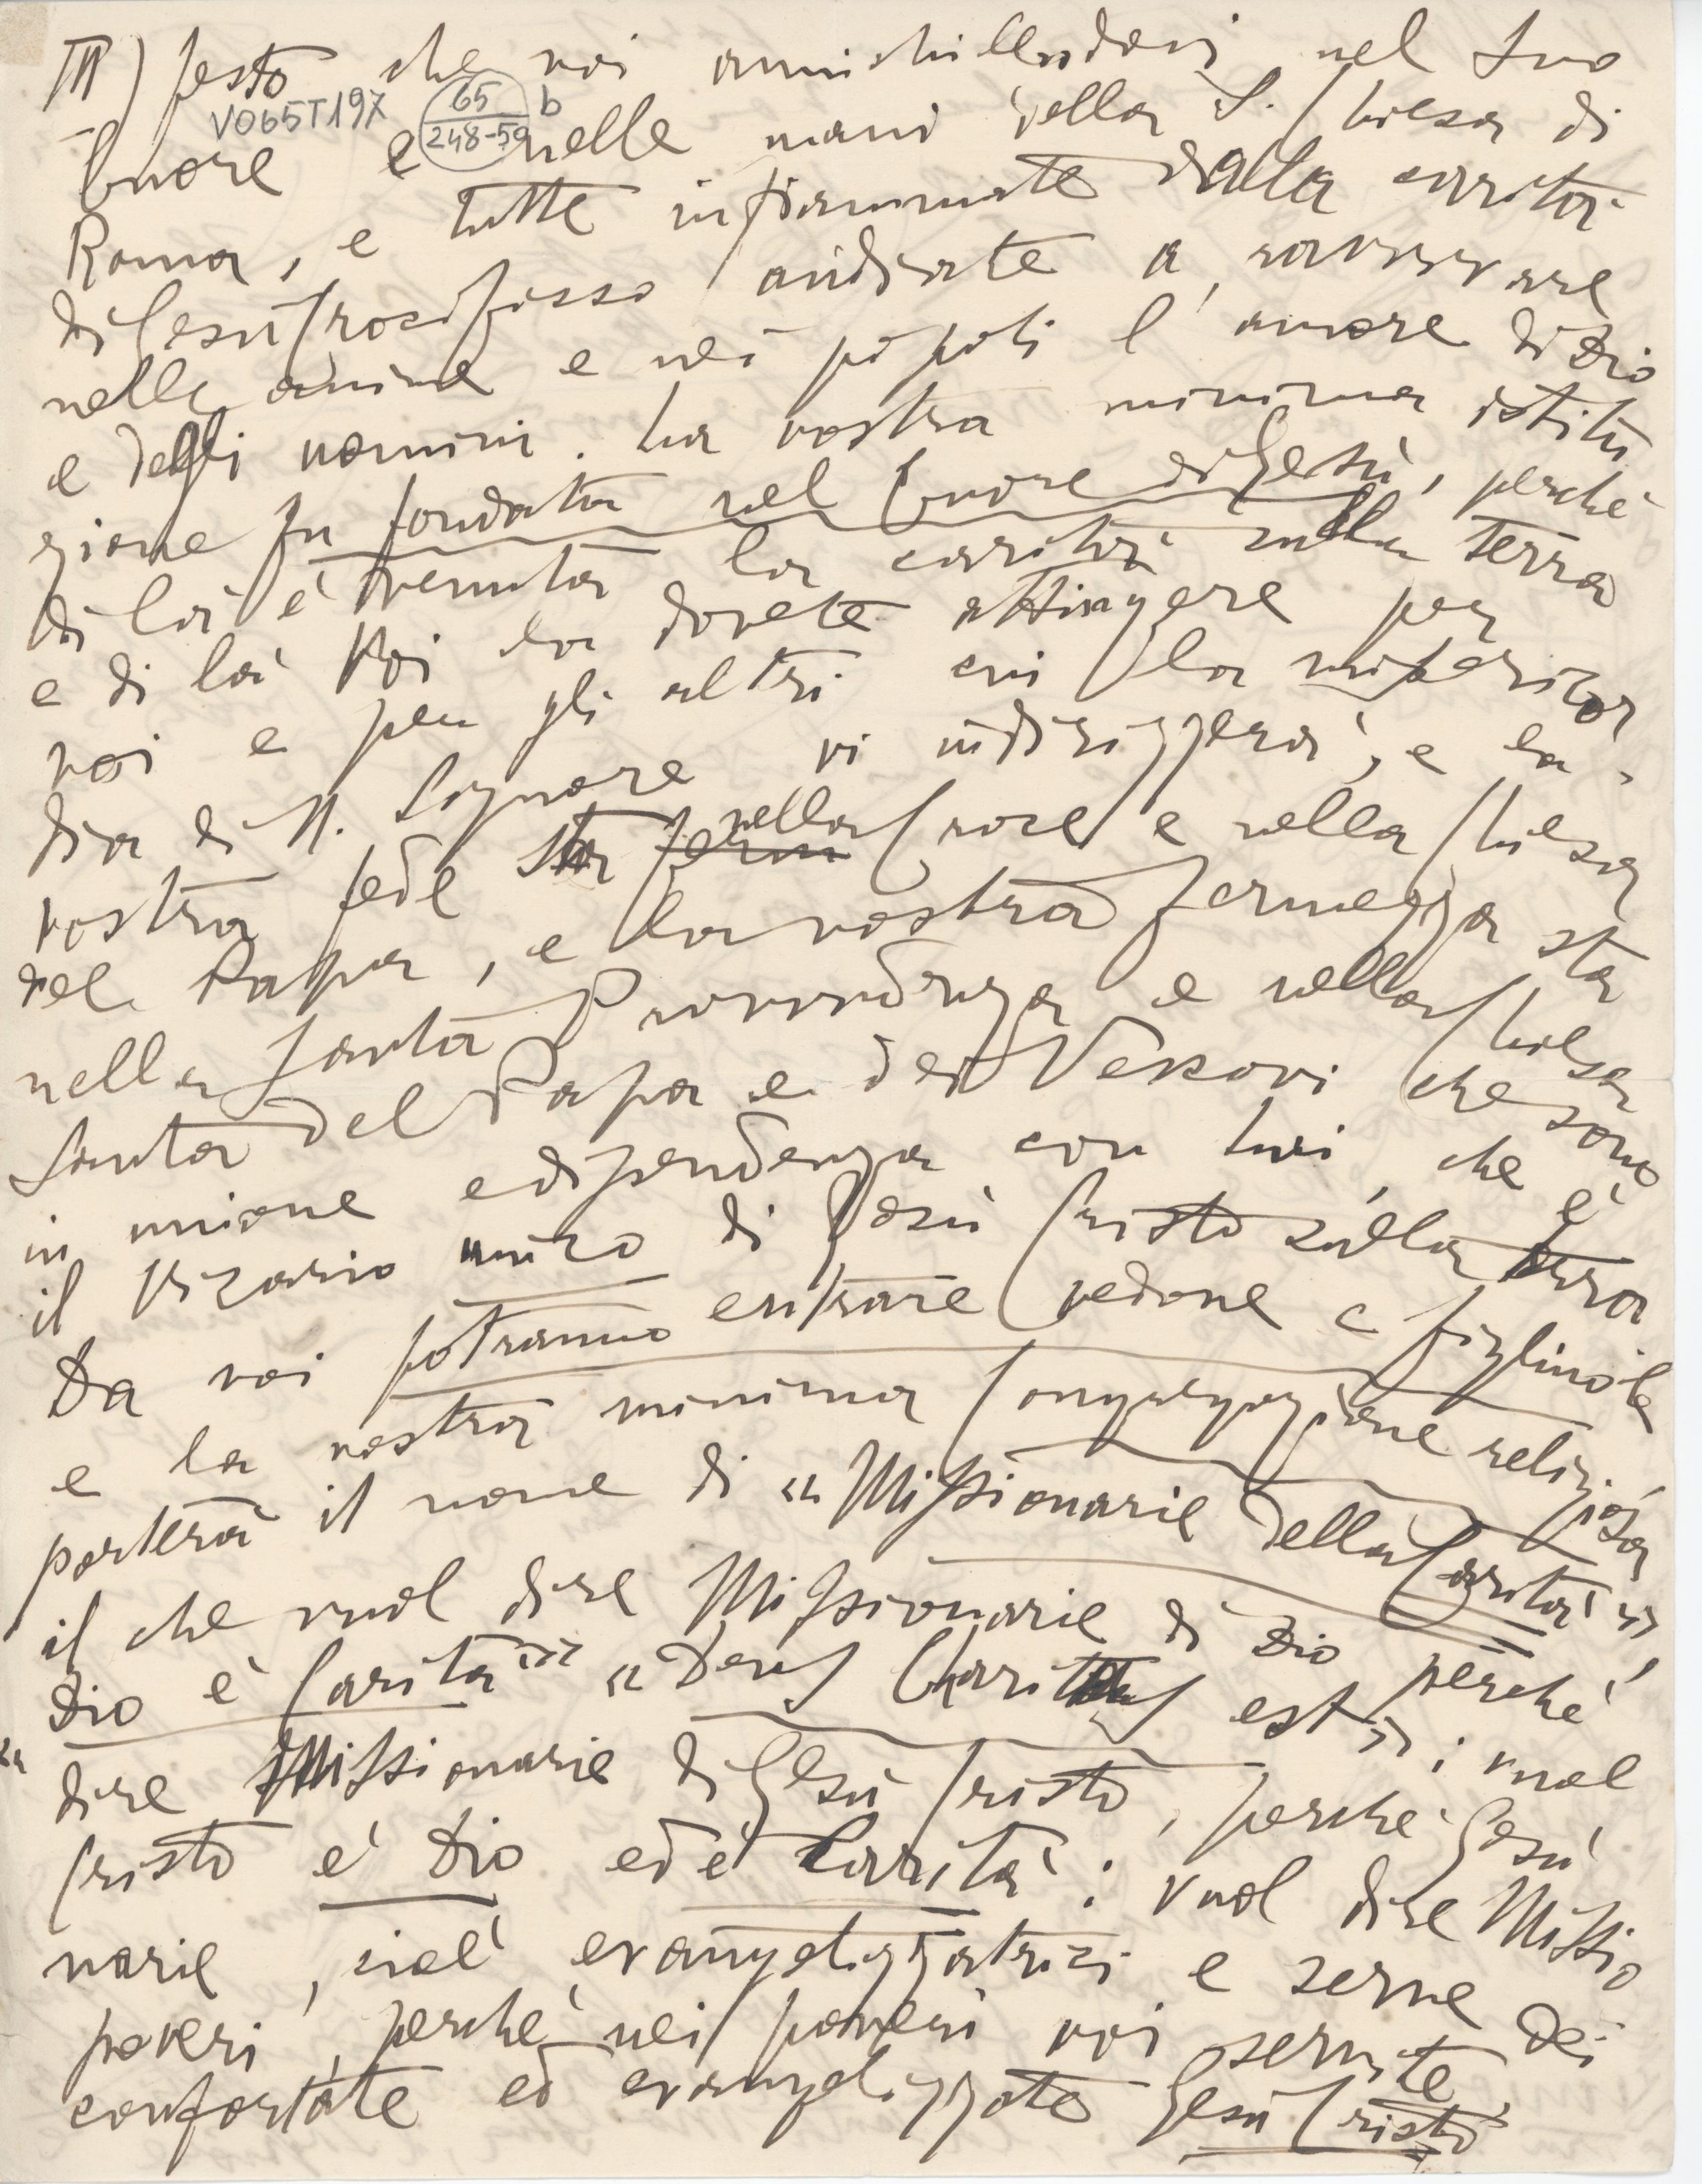 III) festo che voi annichilandovi nel Suo
V065T197 65 b
248-59
Cuore e nelle mani della S. Chiesa di
Roma, e tutte infiammate dalla carità
di Gesù Crocifisso andiate a ravvivare
nelle anime e nei popoli l'amore di Dio
e degli uomini. La vostra minima istitu
zione fu fondata nel Cuore di Gesù, perché
di là è venuta la carità sulla terra
e di là voi la dovete attingere per
voi e per gli altri cui la misericor
dia di N. Signore vi indirizzerà, e la
vostra fede sta nella Croce e nella Chiesa
del Papa, e la vostra fermezza sta
nella Santa Provvidenza e nella Chiesa
Santa del Papa e dei Vescovi che sono
in unione e dipendenza con Lui, che è
il Vicario unico di Gesù Cristo sulla terra
Da voi potranno entrare vedove e figliuole
e la vostra minima Congregazione religiosa
porterà il nome di "Missionarie della Carità",
il che vuol dire Missionarie di Dio perché
"Dio è Carità" "Deus Charitas est"; vuol
dire Missionarie di Gesù Cristo, perché Gesù
Cristo è Dio ed è Carità: vuol dire Missio
narie, cioè evangelizzatrici e serve dei
poveri, perché nei poveri voi servite
confortate ed evangelizzate Gesù Cristo